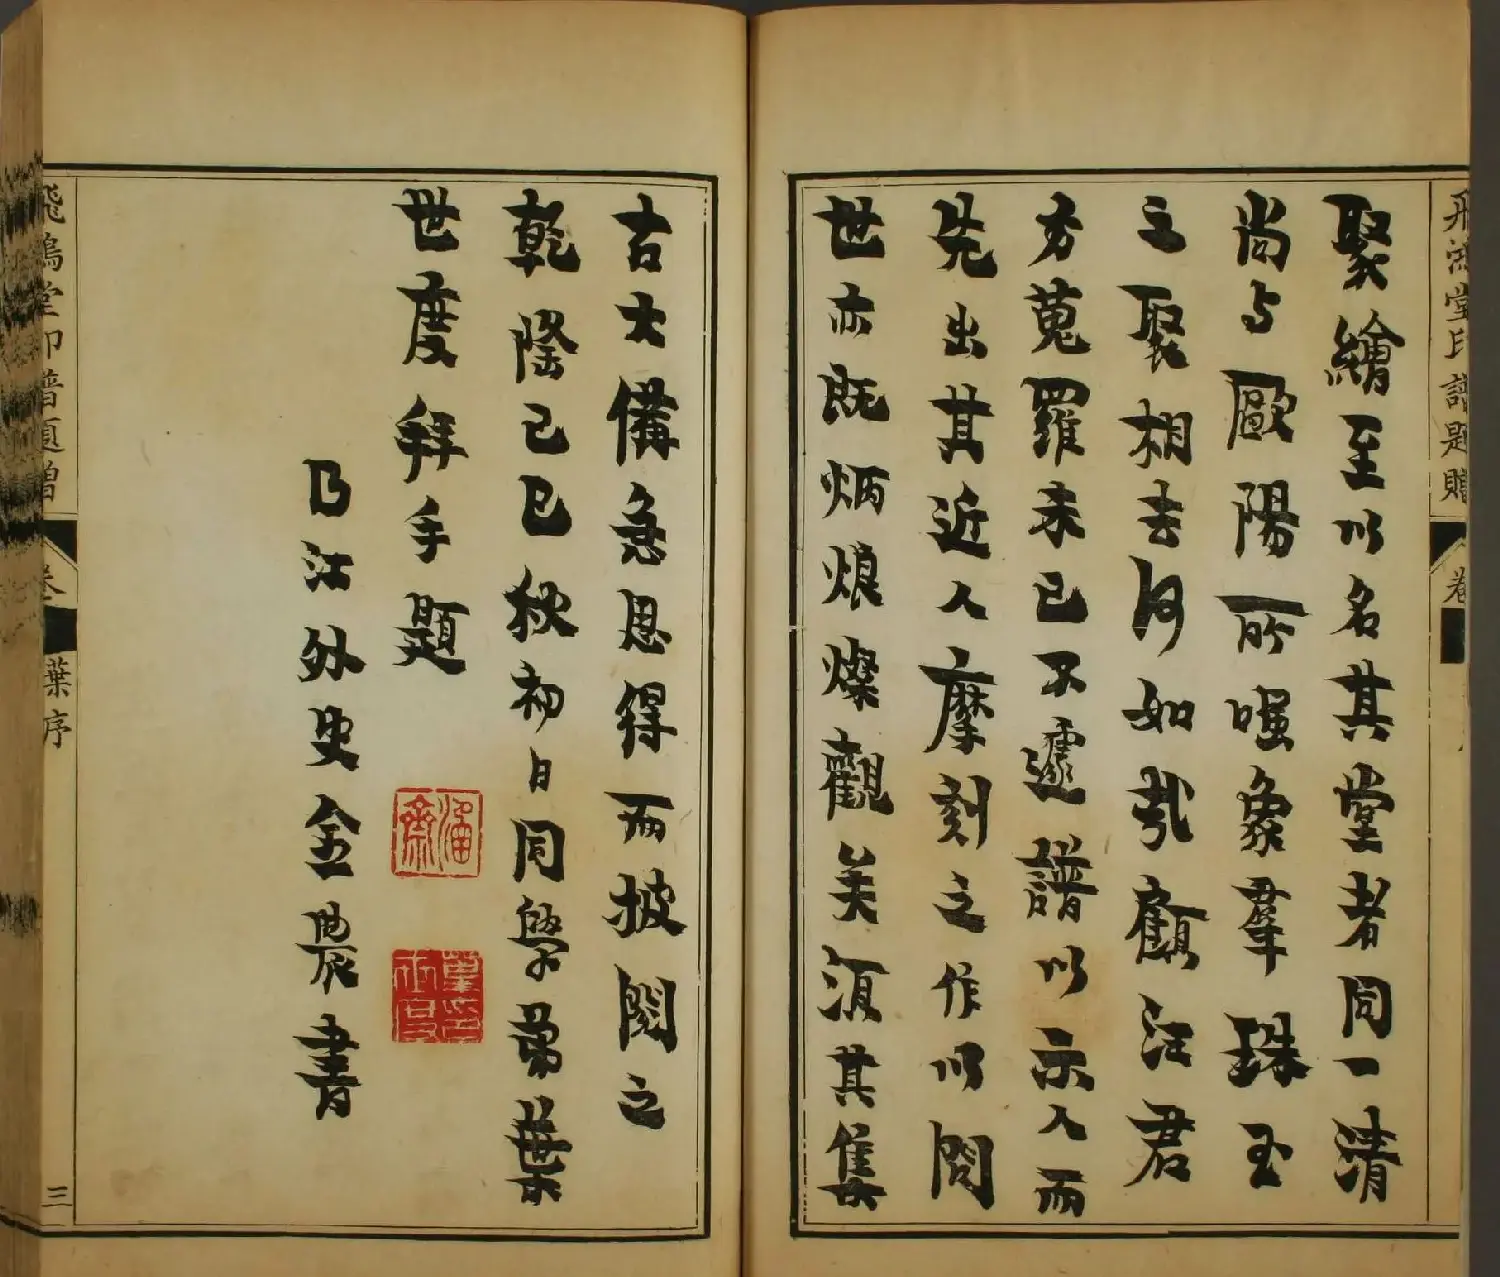 飛鴻堂印譜題贈 卷
聚繪至以名其堂者同一清
尚与歐陽所嗤象犀珠玉
之聚相去何如哉顧汪君
方蒐羅未已不遽譜以示人而
先出其近人摩刻之作以問
世亦既炳烺燦觀美須其集
古大備急思得而披閱之
乾隆己巳秋初日同學弟葉
世度拜手題
葉印世度
曲江外史金農書
飛鴻堂印譜題贈 卷 葉序 三